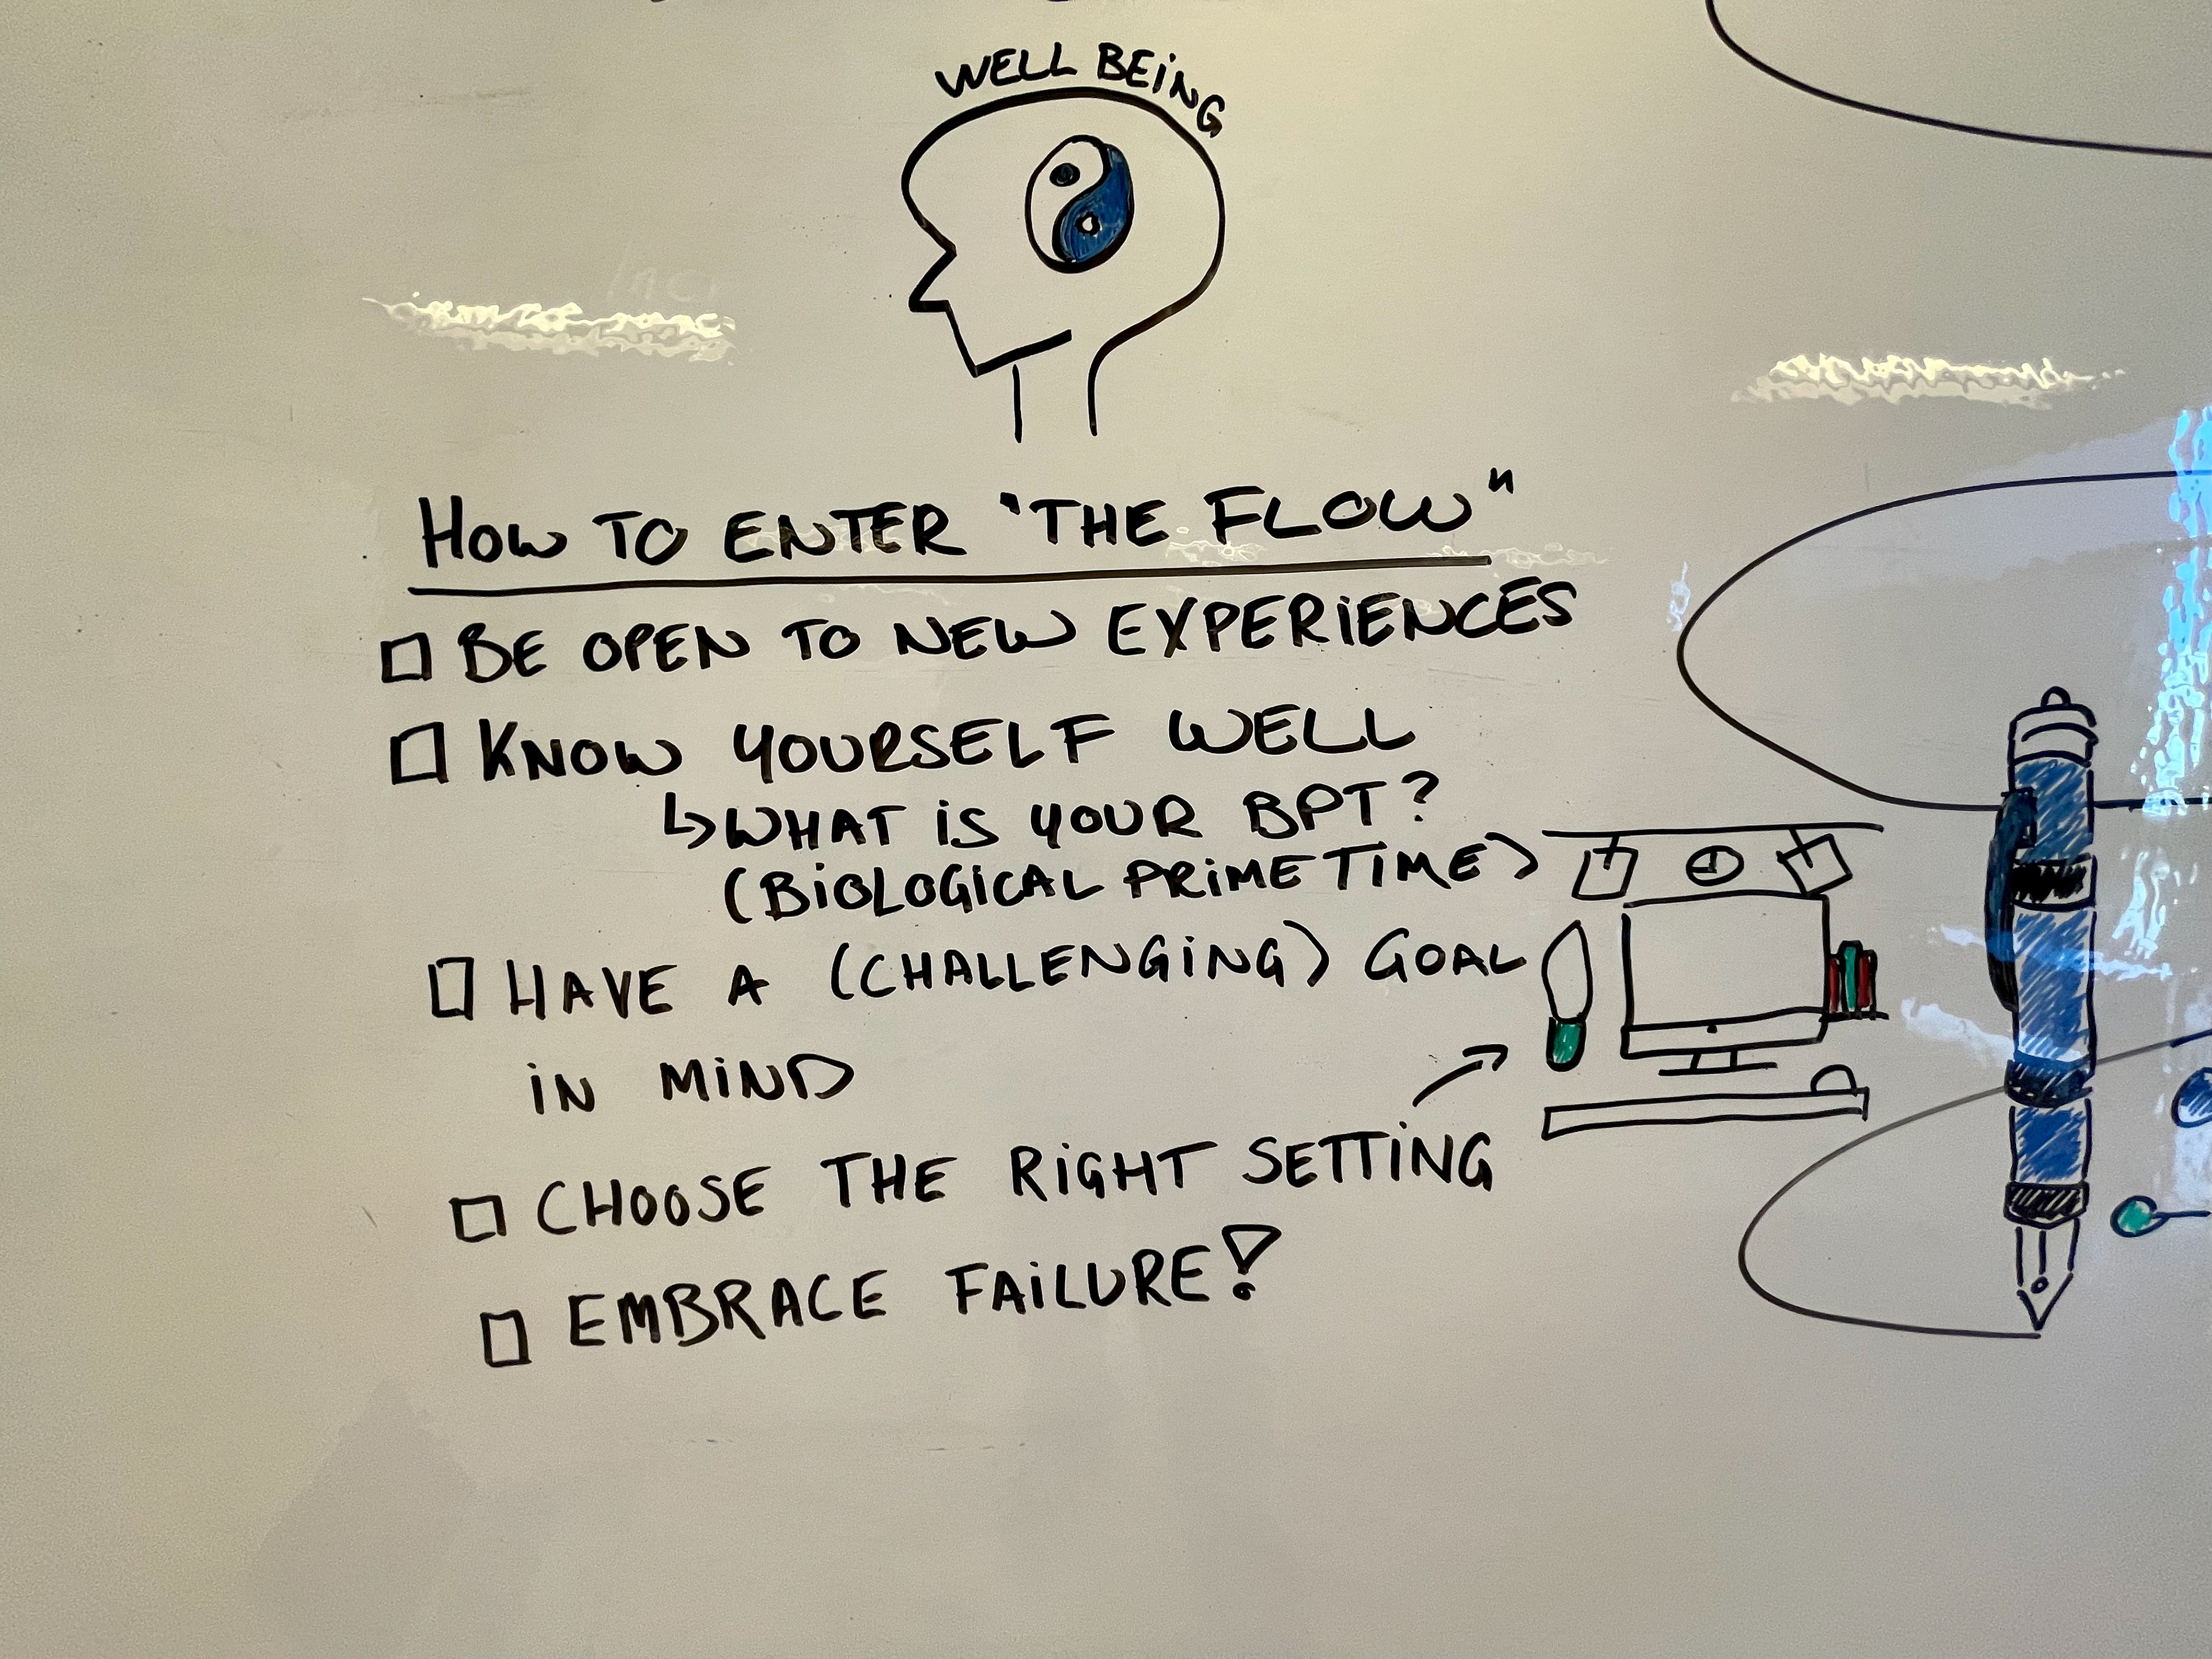 WELL BEING
HOW TO ENTER "THE FLOW"
BE OPEN TO NEW EXPERIENCES
KNOW YOURSELF WELL
↳ WHAT IS YOUR BPT?
(BIOLOGICAL PRIME TIME)
HAVE A (CHALLENGING) GOAL
IN MIND
CHOOSE THE RIGHT SETTING
EMBRACE FAILURE!